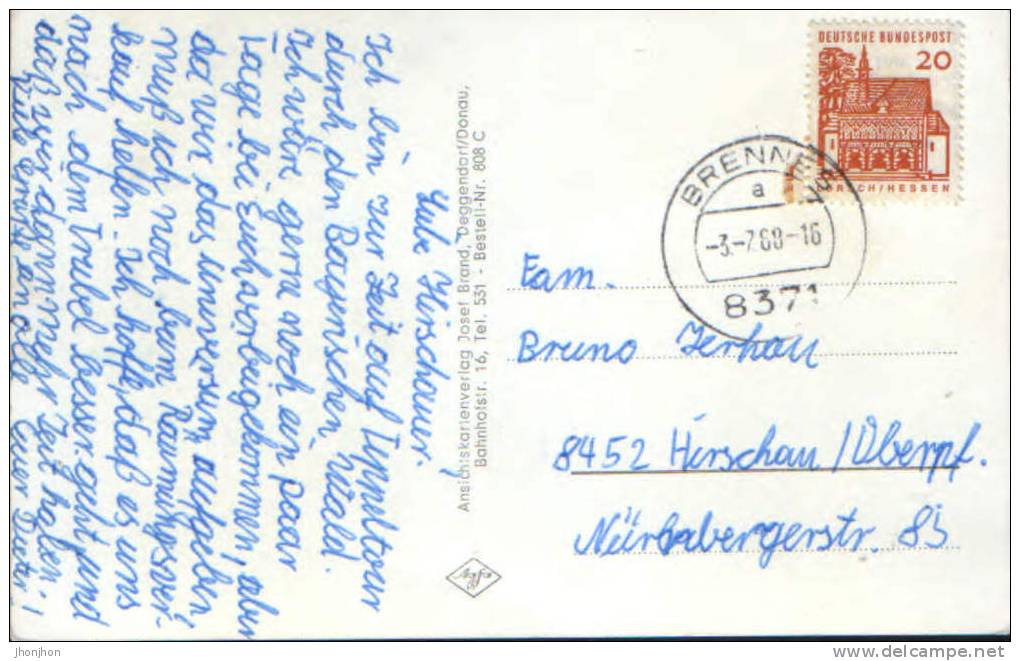 Liebe Hirschauer.
Ich bin zur Zeit auf Tippeltour
durch den Bayrischen Wald.
Ich wäre gerne noch ein paar
Tage bei Euch vorbeigekommen, aber
da wir das "Universum" aufgeben
muß ich noch beim Räumungsver-
kauf helfen. Ich hoffe, daß es uns
nach dem Trubel besser geht und
daß wir dann mehr Zeit haben.
Viele Grüße an alle Euer Dieter!
Ansichtskartenverlag Josef Brand, Deggendorf/Donau,
Bahnhofstr. 16, Tel. 531 - Bestell-Nr. 808 C
Agfa
DEUTSCHE BUNDESPOST
20
LORSCH/HESSEN
BRENNES
a
-3.-7.68-16
8371
Fam.
Bruno Jerhau
8452 Hirschau/Oberpf.
Nürnbergerstr. 85
jhonjhon
www.delcampe.net